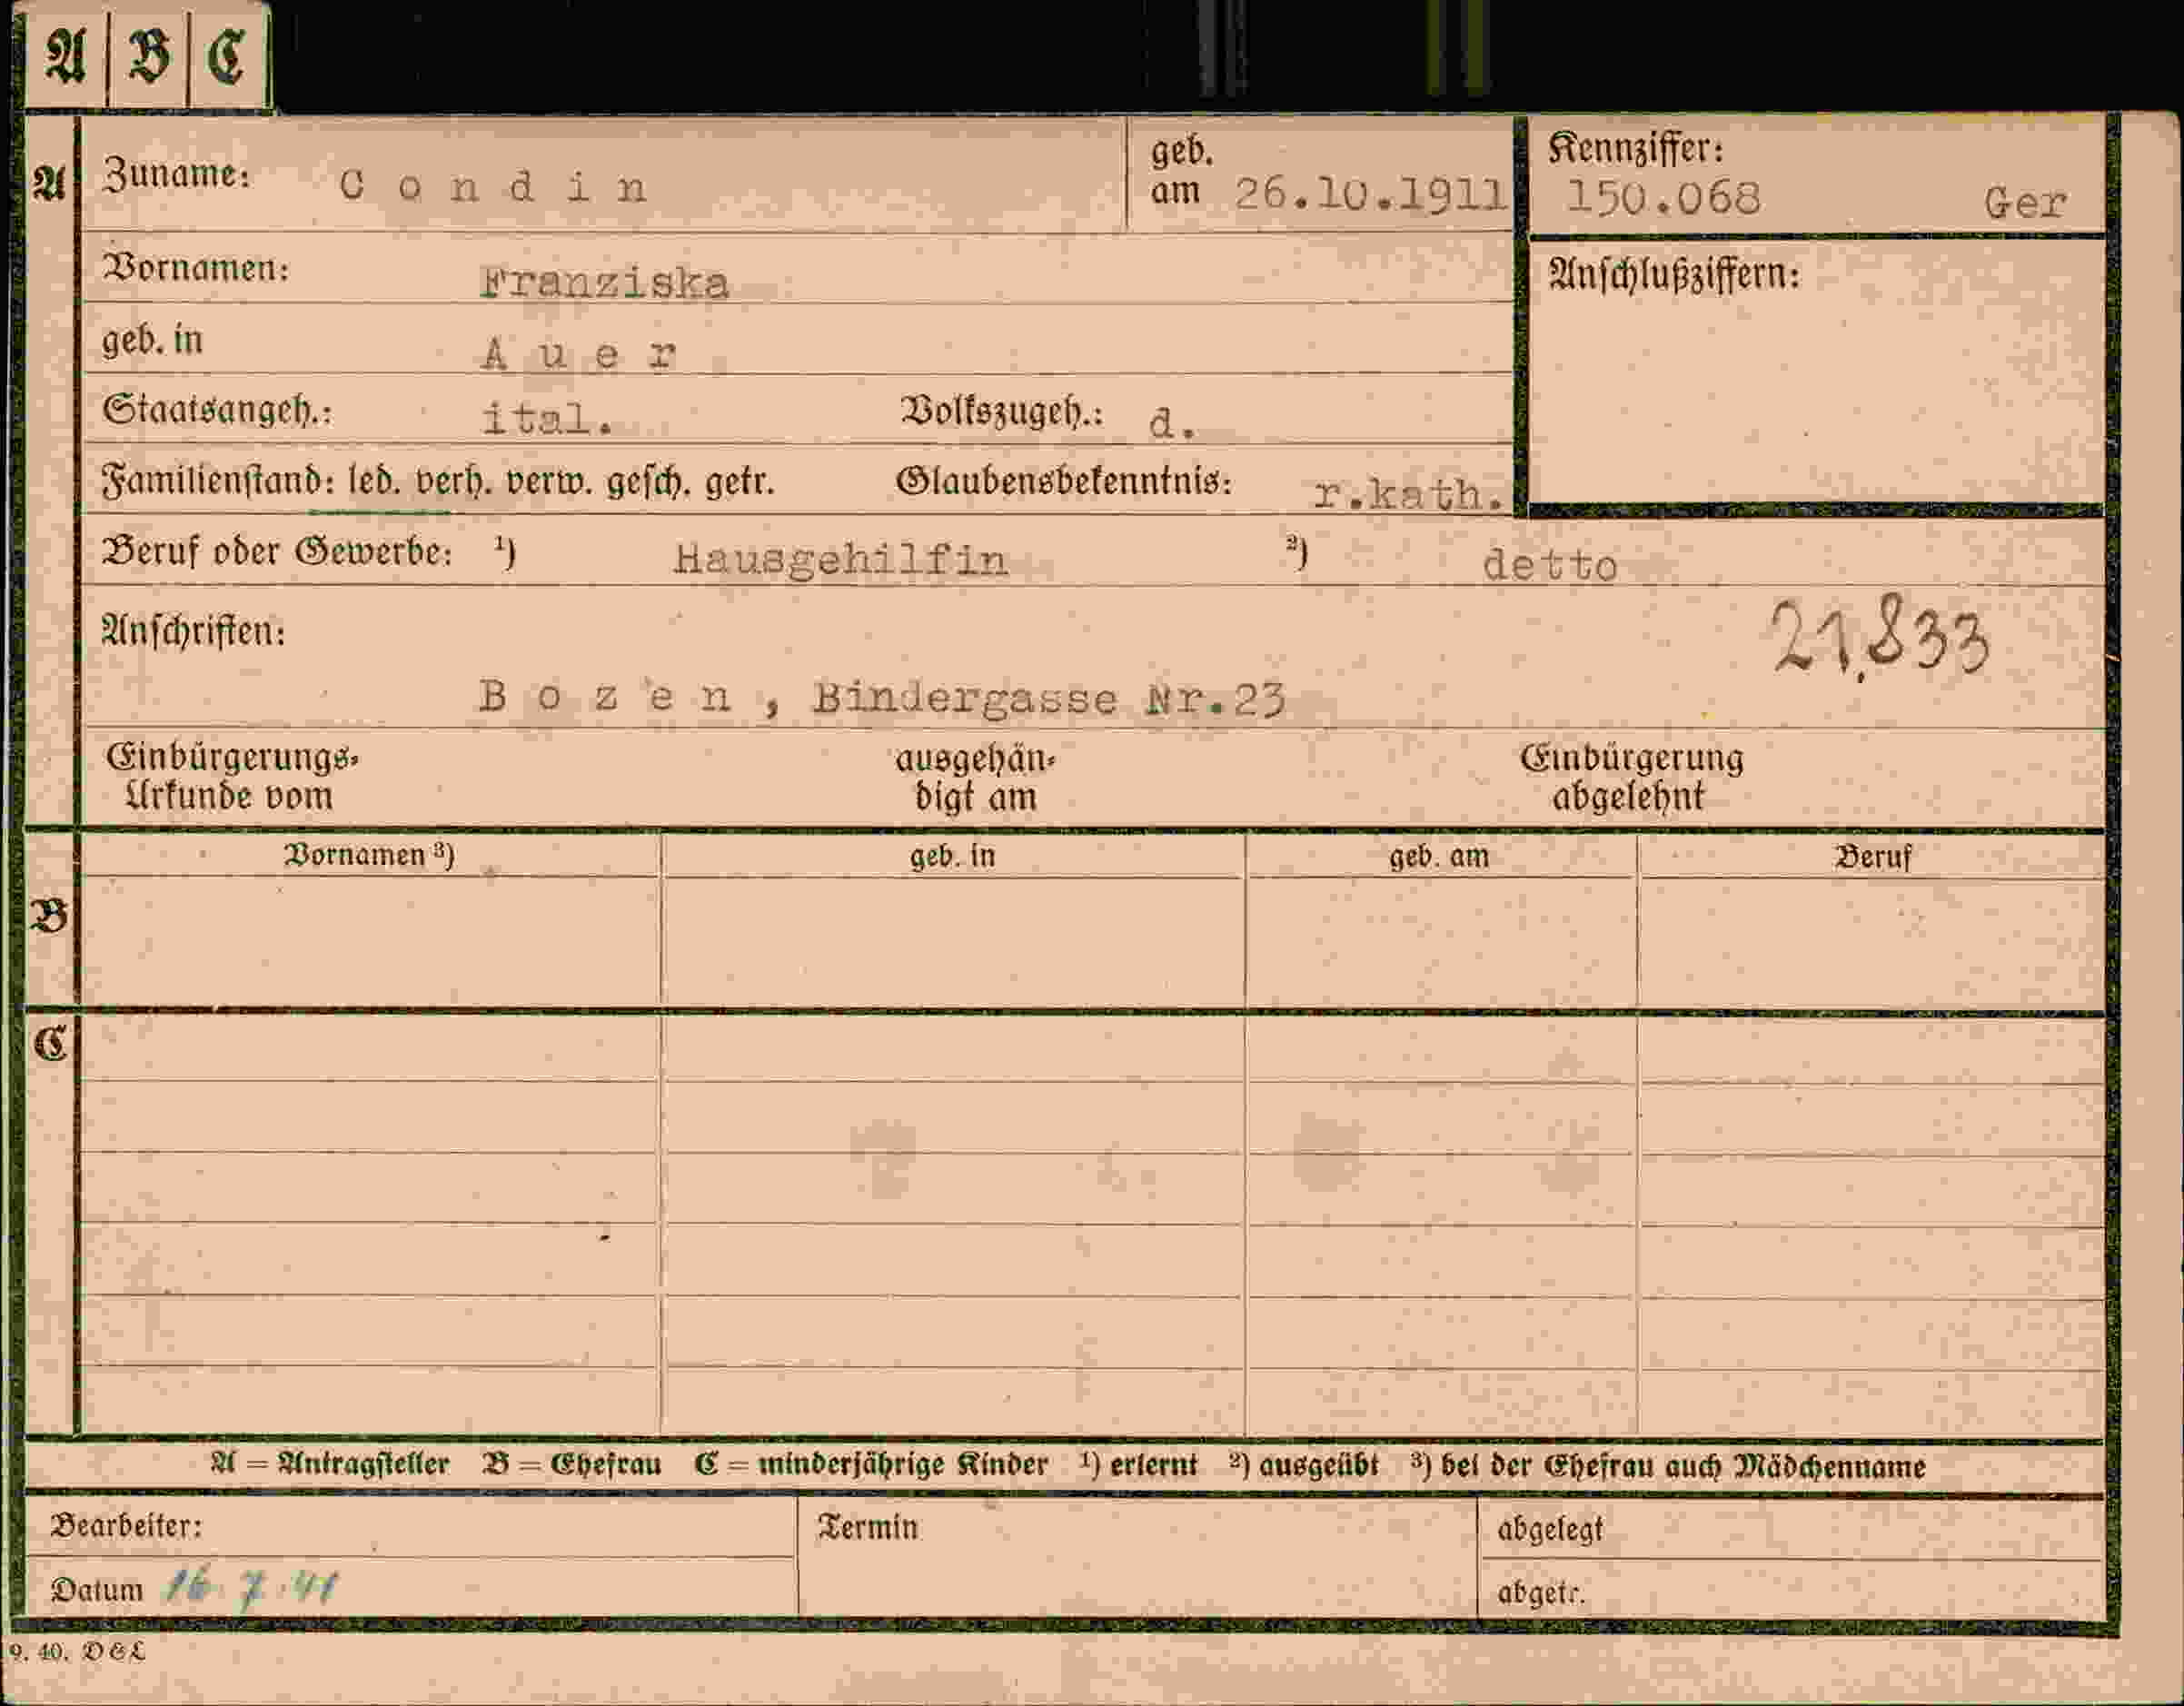 A B C
A Zuname: Condin geb. am 26.10.1911 Kennziffer: 150.068 Ger
Vornamen: Franziska Anschlußziffern:
geb. in Auer
Staatsangeh.: ital. Volkszugeh.: d.
Familienstand: led. verh. verw. gesch. getr. Glaubensbekenntnis: r.kath.
Beruf oder Gewerbe: ¹) Hausgehilfin ²) detto
Anschriften: 21.833
Bozen, Bindergasse Nr.23
Einbürgerungs-Urkunde vom ausgehän-digt am Einbürgerung abgelehnt
Vornamen ³) geb. in geb. am Beruf
B
C
A = Antragsteller B = Ehefrau C = minderjährige Kinder ¹) erlernt ²) ausgeübt ³) bei der Ehefrau auch Mädchenname
Bearbeiter: Termin abgelegt
Datum 16.7.41 abgetr.
9. 40. DGL